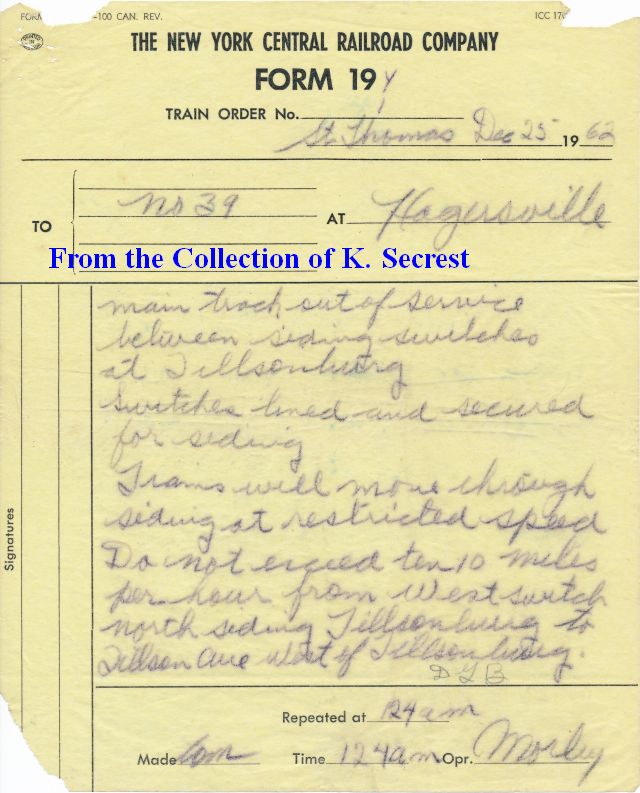 FORM -100 CAN. REV. ICC 170
PRINTED IN
THE NEW YORK CENTRAL RAILROAD COMPANY
FORM 19 Y
TRAIN ORDER No.
St. Thomas Dec 25 1962
TO No 39 AT Hagersville
From the Collection of K. Secrest
main track out of service
between siding switches
at Tillsonburg
Switches lined and secured
for siding
Trains will move through
siding at restricted speed
Do not exceed ten 10 miles
per hour from West switch
north siding Tillsonburg to
Tillson Ave West of Tillsonburg.
Signatures
Repeated at 124am
Made Com Time 124am Opr. Morley